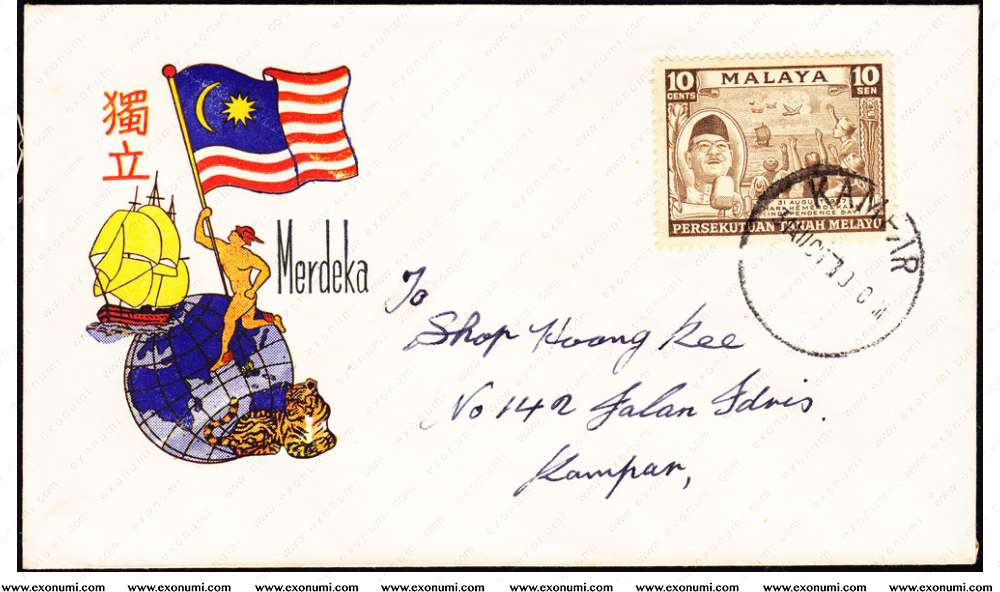 獨立
Merdeka
10 CENTS
MALAYA
10 SEN
31 AUGUST 1957
HARI KEMERDEKAAN
INDEPENDENCE DAY
PERSEKUTUAN TANAH MELAYU
KAMPAR
To
Shop Hoong Kee
No 142 Jalan Idris.
Kampar,
www.exonumi.com www.exonumi.com www.exonumi.com www.exonumi.com www.exonumi.com www.exonumi.com www.exonumi.com www.exonumi.com